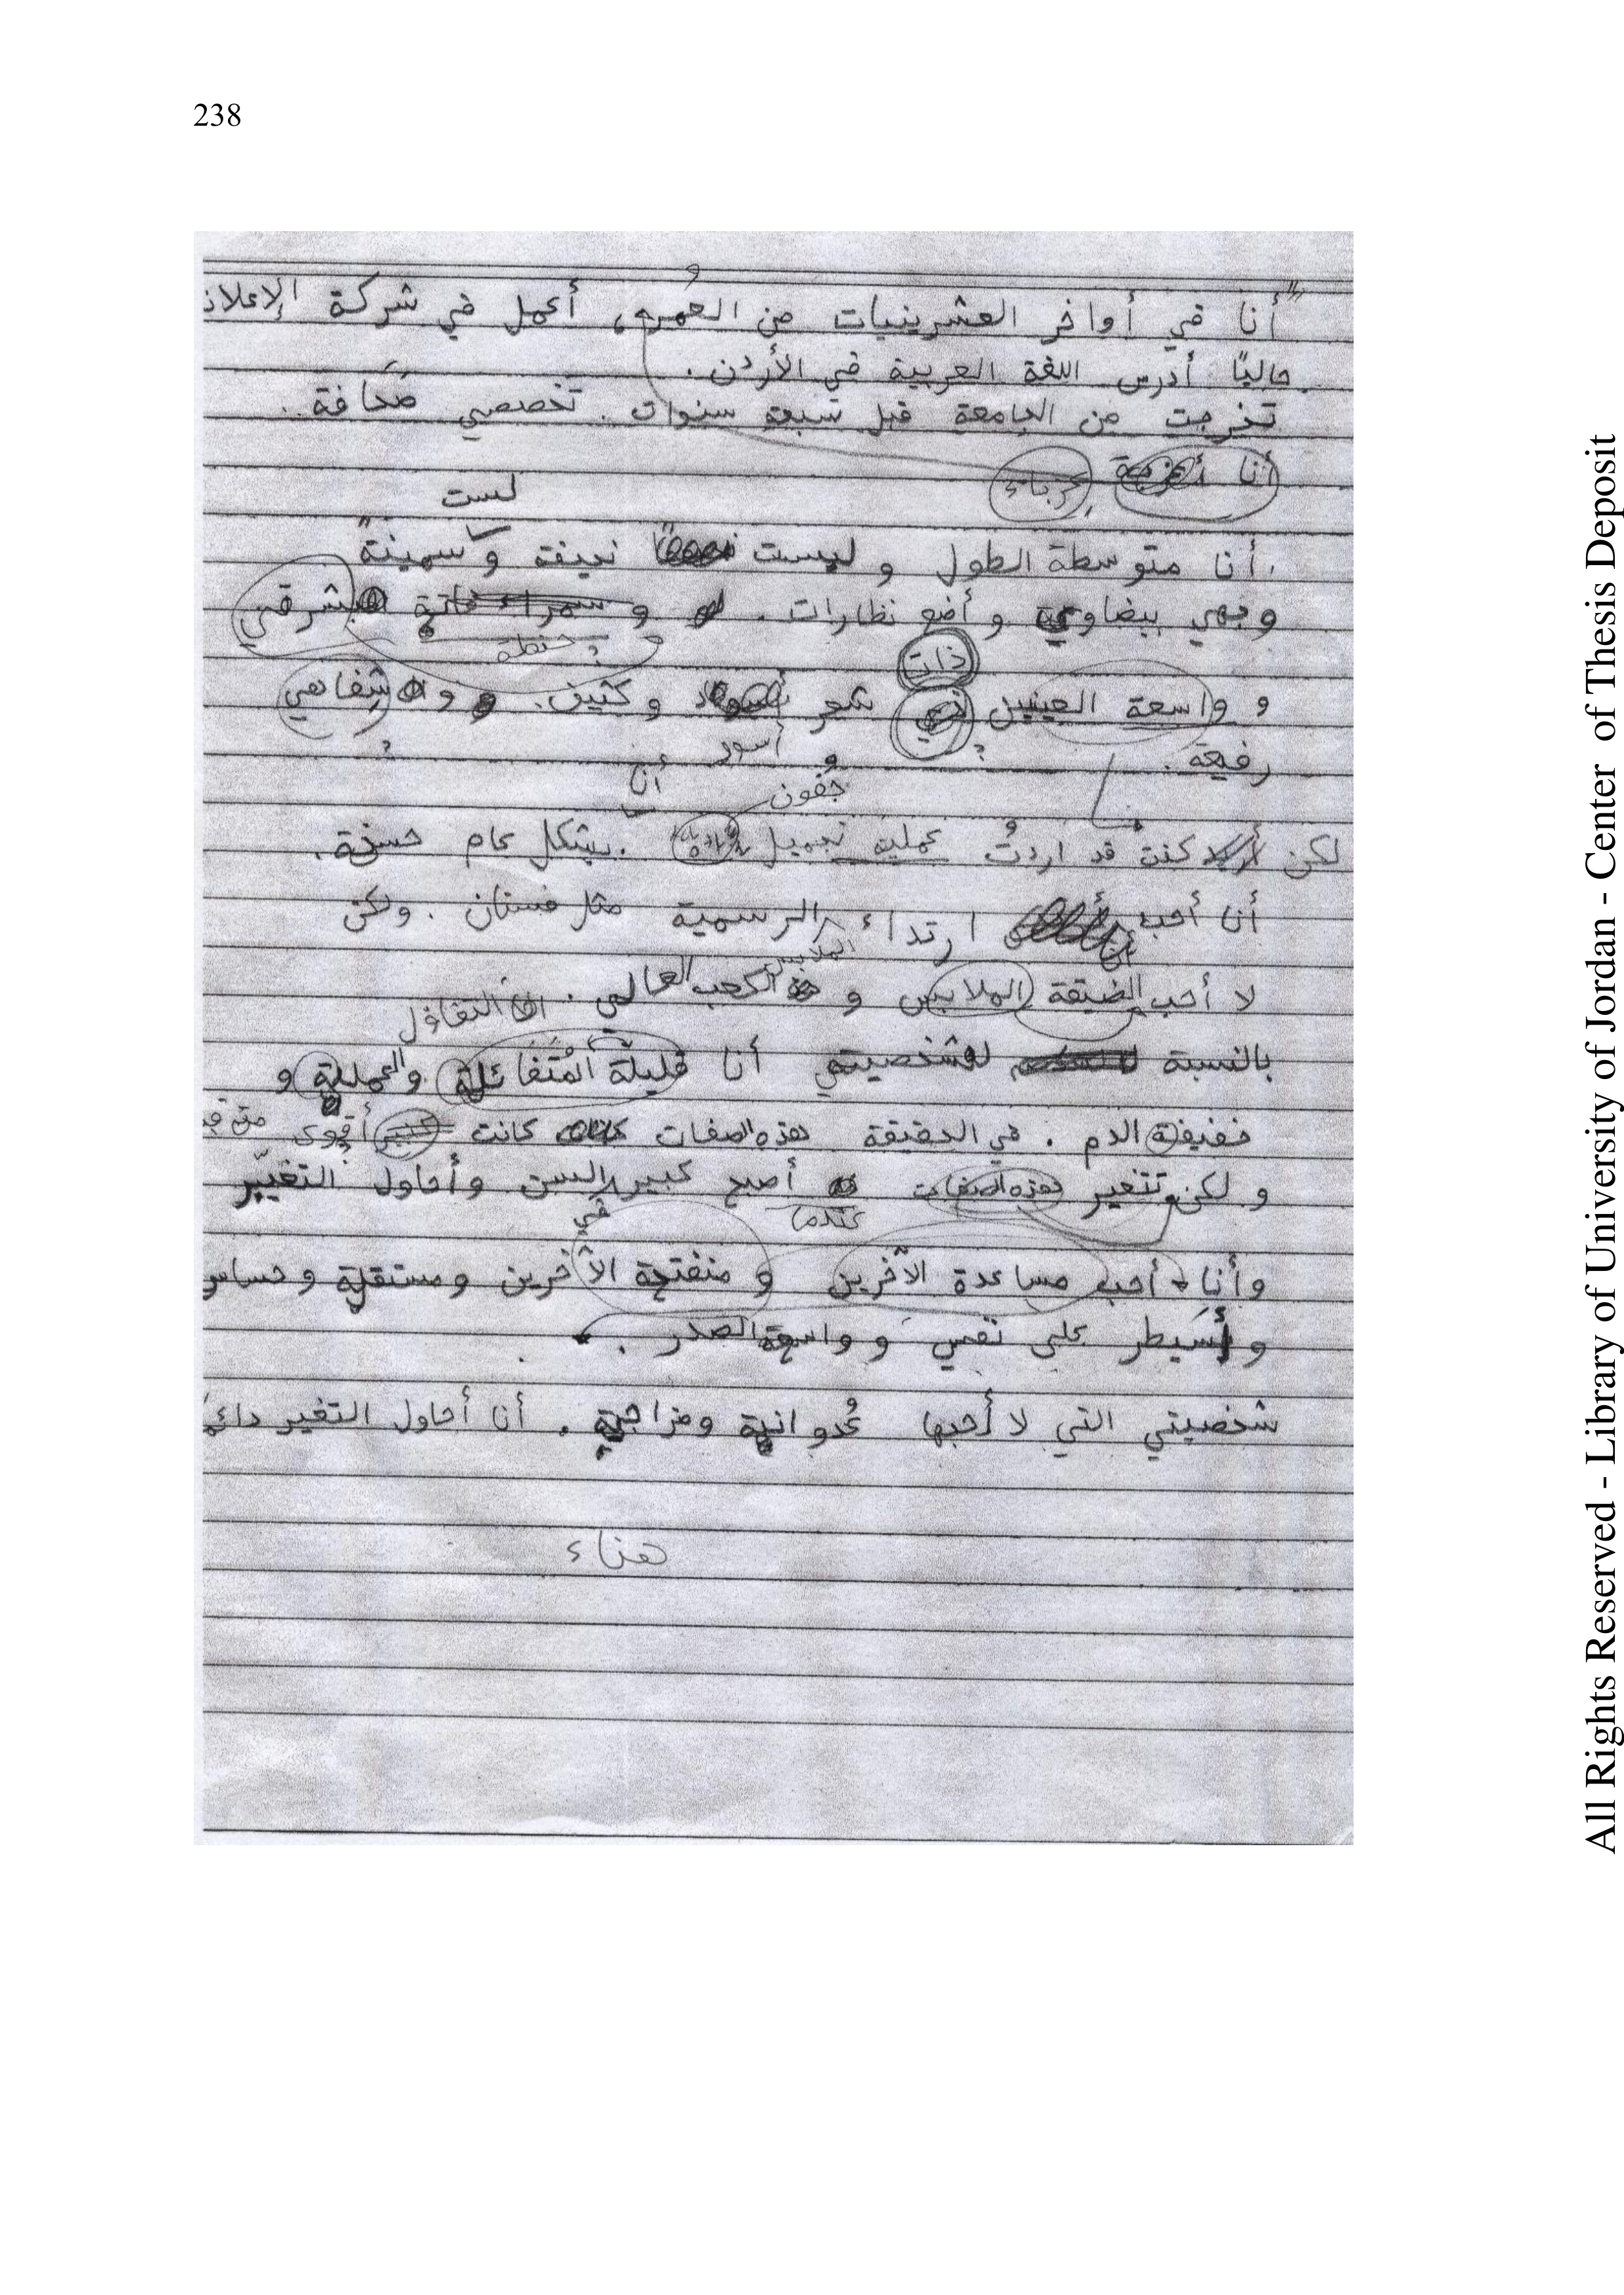 238
أنا في أواخر العشرينيات من العمر، أعمل في شركة الإعلان
حاليًا أدرس اللغة العربية في الأردن.
تخرجت من الجامعة قبل سبعة سنوات. تخصصي صَحافة.
أنا
لست
أنا متوسطة الطول و ليست نحيفة و سمينة
وجهي بيضاوي و أضع نظارات. و سمراء شرقي
حنطة
ذات
و واسعة العينين شعر و كثيف. و شفاهي
رفيعة.
و أسود
جفون
أن
لكن كنت قد اردتُ عملية تجميل. بشكل عام حسنة.
أنا أحب ارتداء الرسمية مثل فستان. ولكن
الملابس
لا أحب الضيقة الملابس و الكعب العالي.
التفاؤل
بالنسبة لشخصيتي أنا قليلة المُتَفائلة والعملية و
خفيفة الدم. في الحقيقة هذه الصفات كانت أقوى من قبل
و لكن تتغير هذه الصفات أصبح كبير السن وأحاول التغيّير
عندما
في
وأنا أحب مساعدة الآخرين و منفتحة الآخرين ومستقلة و حساس
و أسَيطر على نفسي و واسعة الصدر.
شخصيتي التي لا أحبها عُدوانية ومزاجية. أنا أحاول التغير دائمًا
هناء
All Rights Reserved - Library of University of Jordan - Center of Thesis Deposit